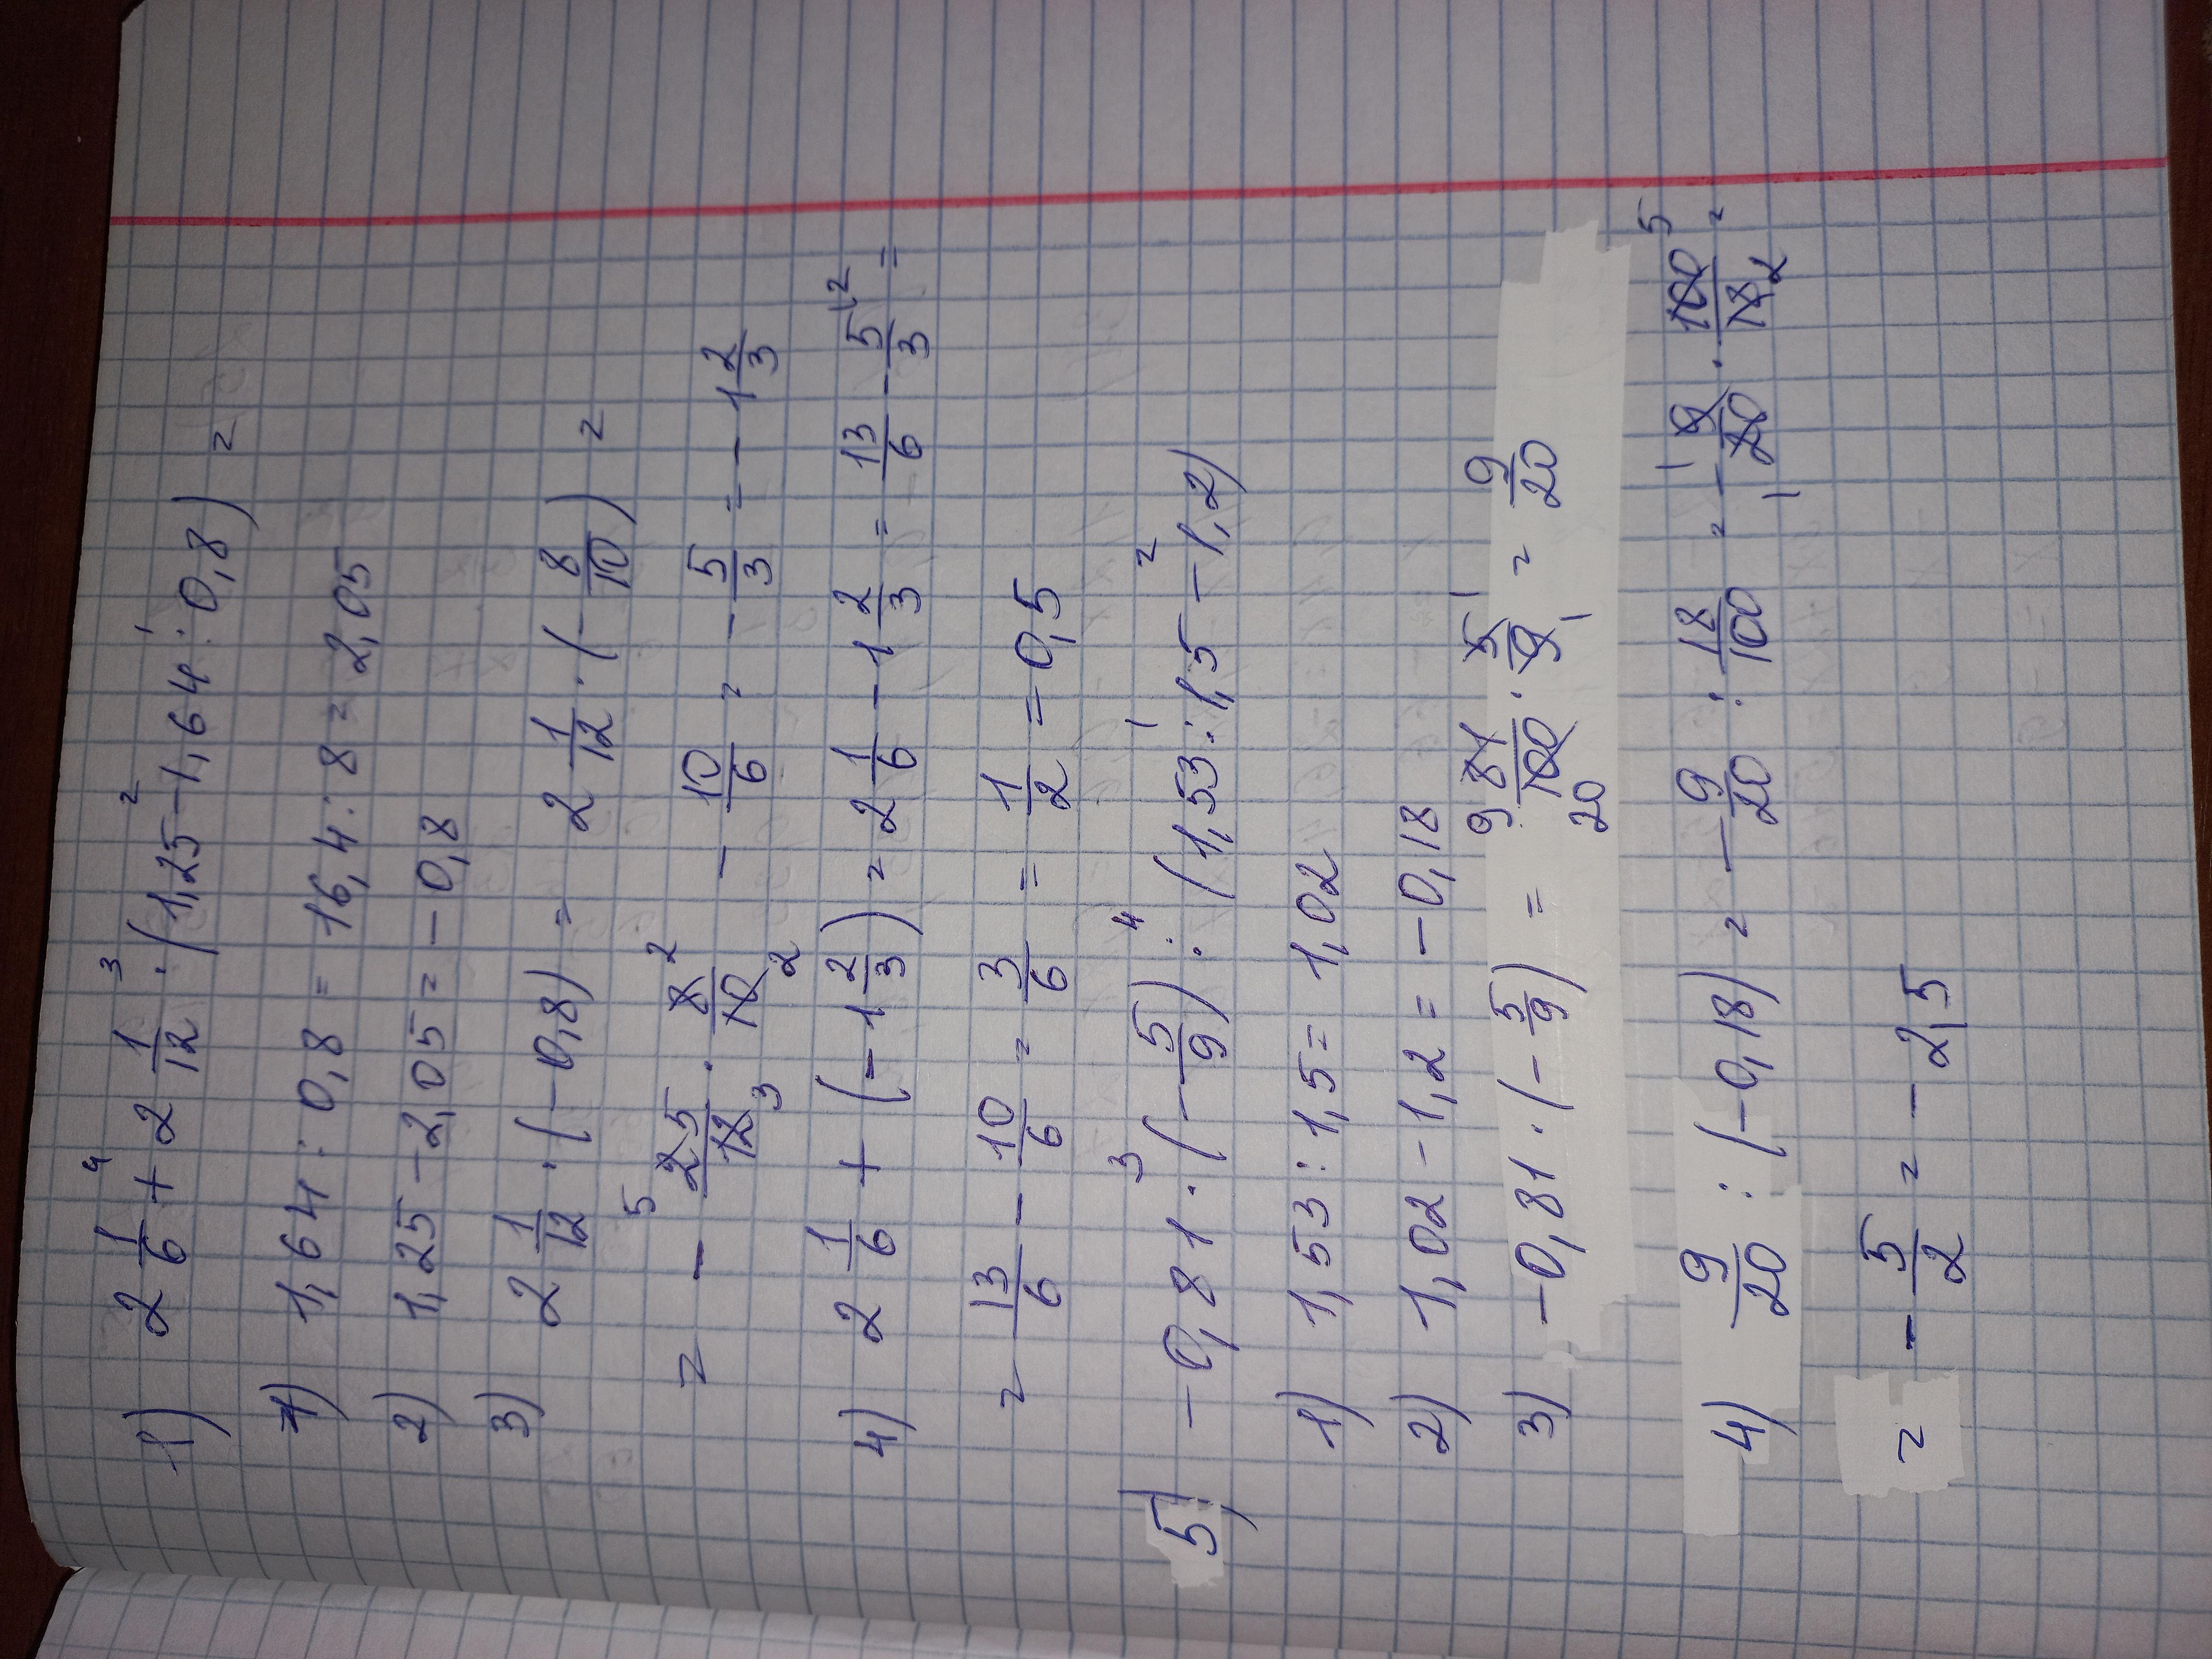 1) 2 1/6 + 2 1/12 · (1,25 - 1,64 : 0,8) =
1) 1,64 : 0,8 = 16,4 : 8 = 2,05
2) 1,25 - 2,05 = - 0,8
3) 2 1/12 · (- 0,8) = 2 1/12 · (- 8/10) =
= - 25/12 · 8/10 = - 10/6 = - 5/3 = - 1 2/3
4) 2 1/6 + (- 1 2/3) = 2 1/6 - 1 2/3 = 13/6 - 5/3 =
= 13/6 - 10/6 = 3/6 = 1/2 = 0,5
5) - 0,81 · (- 5/9) : (1,53 : 1,5 - 1,2)
1) 1,53 : 1,5 = 1,02
2) 1,02 - 1,2 = - 0,18
3) - 0,81 · (- 5/9) = 81/100 · 5/9 = 9/20
4) 9/20 : (- 0,18) = - 9/20 : 18/100 = - 9/20 · 100/18 =
= - 5/2 = - 2,5